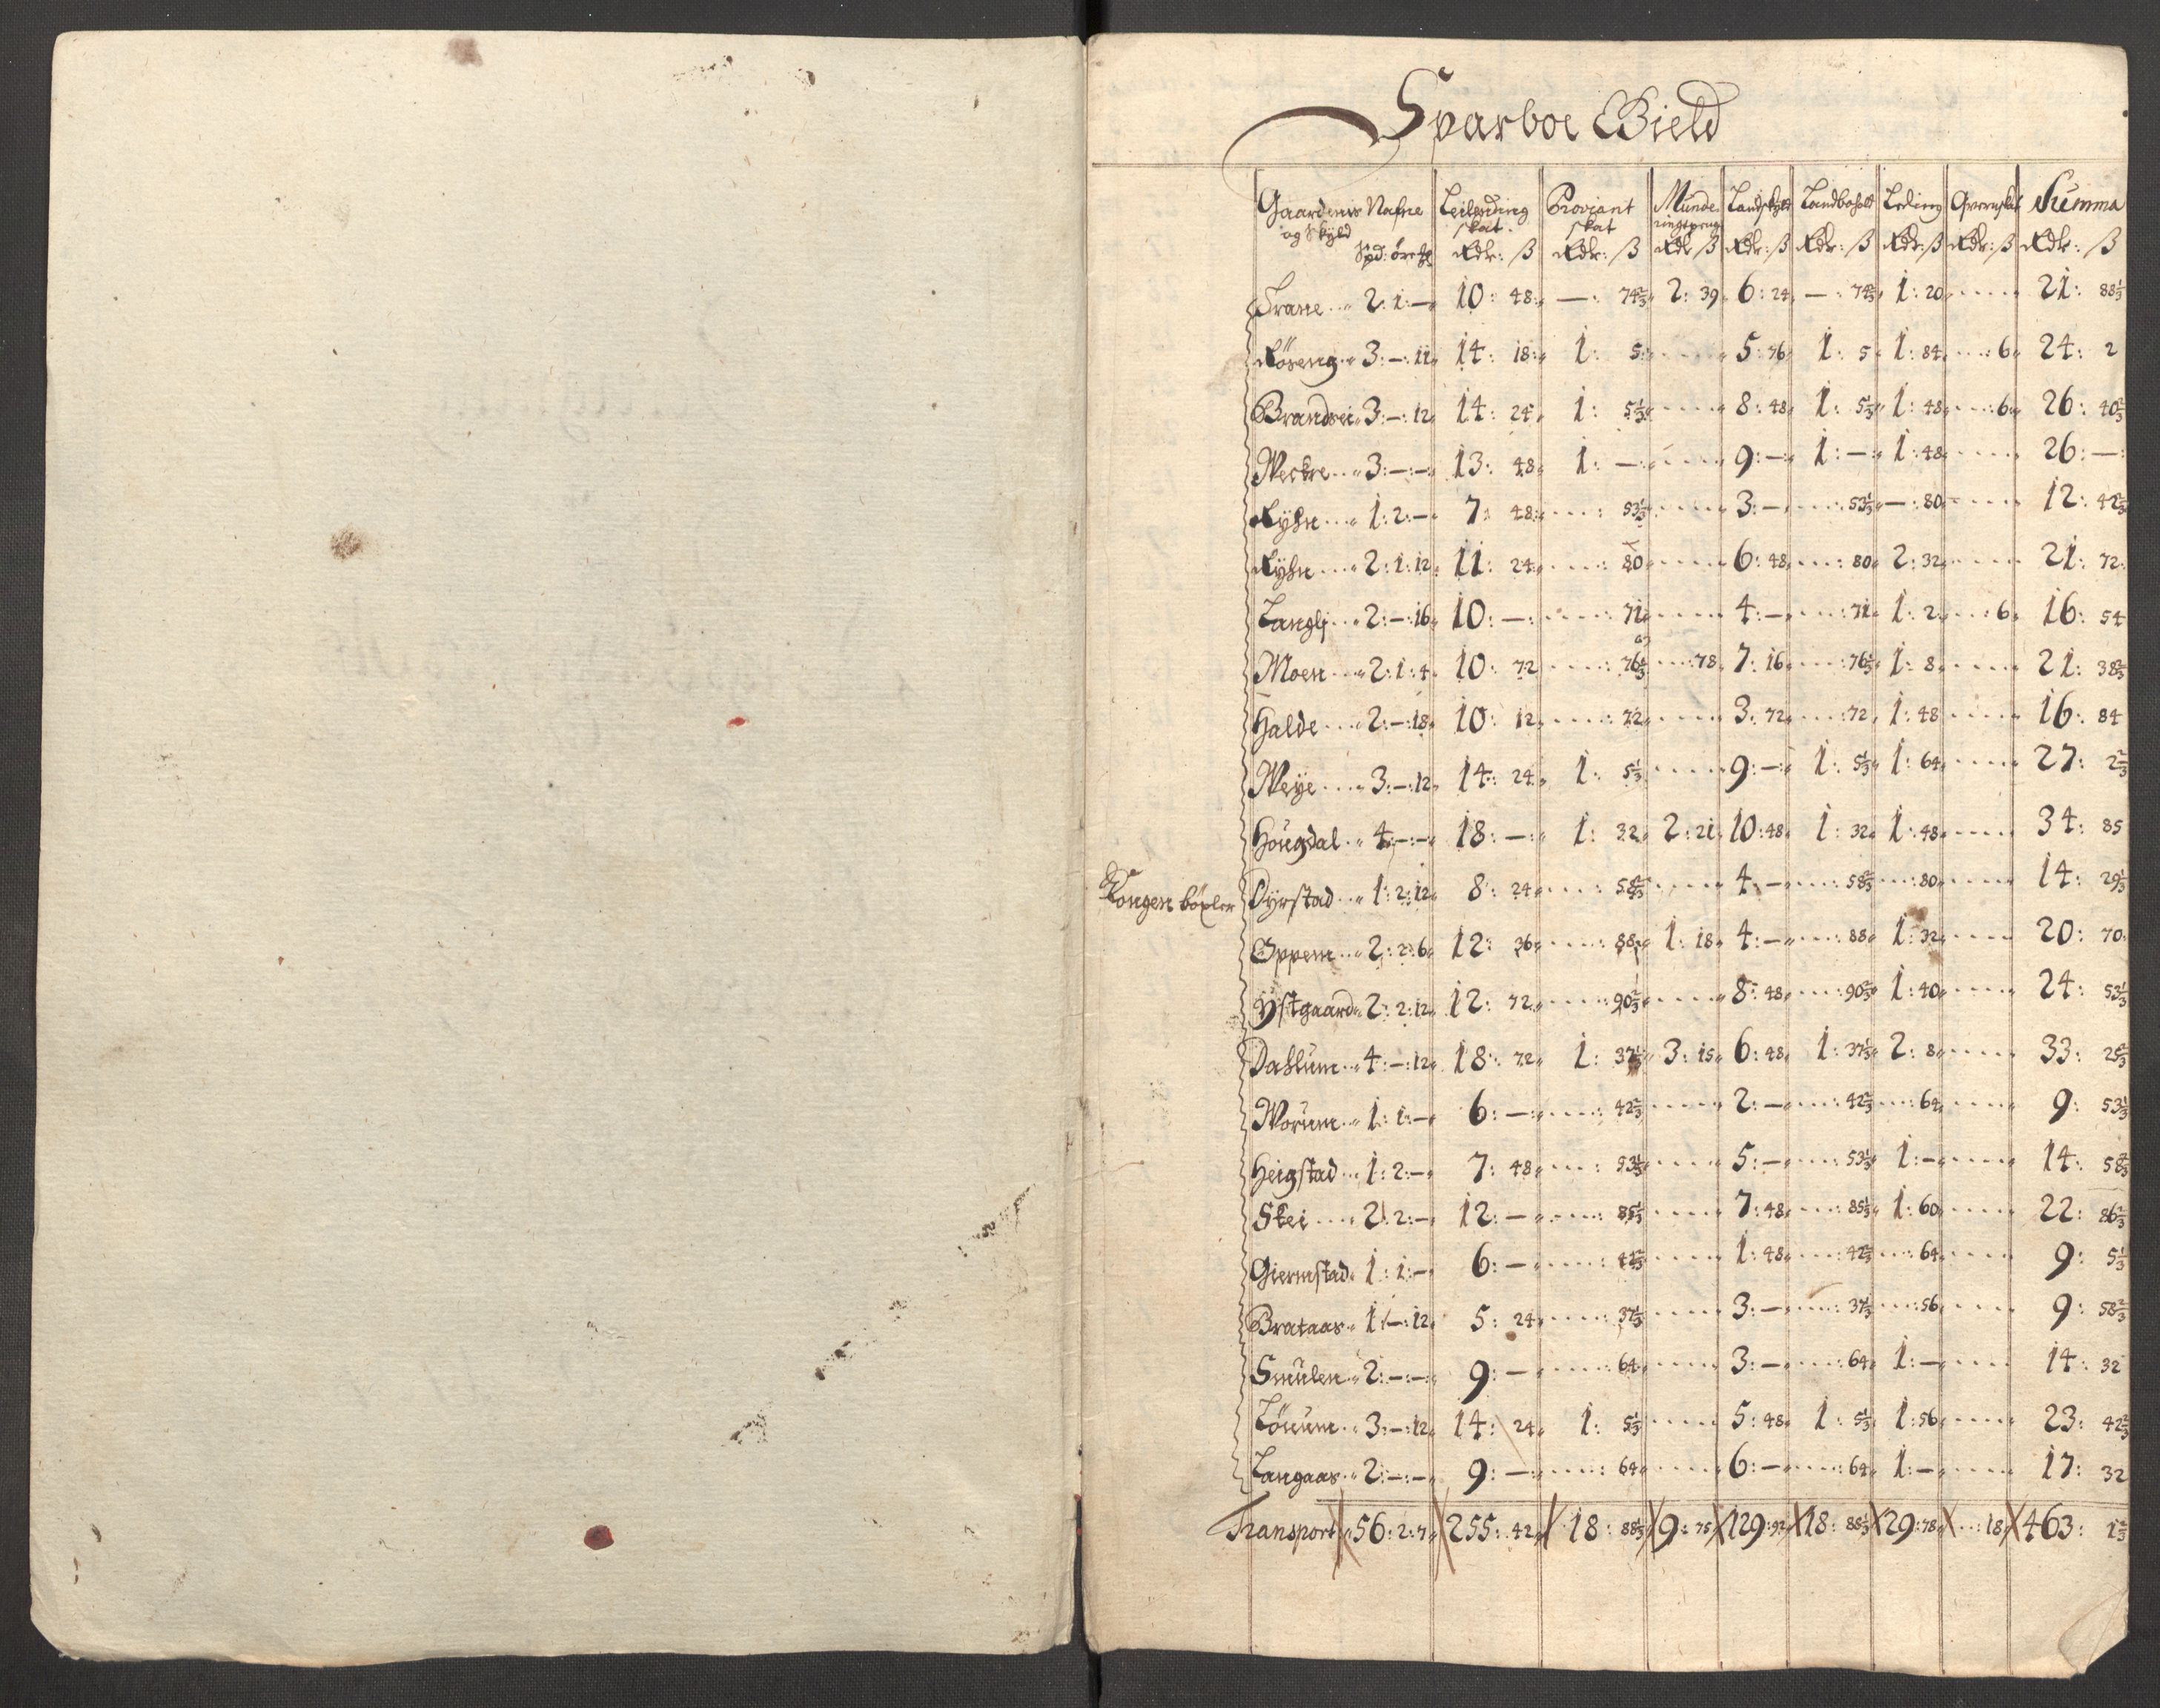 Sparboe Gield
Gaardenis Nafne og Skyld Spd: öre ℔ | Leilending skat. Rdr: ß | Proviant skat Rdr: ß | Munde ringspeng Rdr ß | Landskyld Rdr: ß | Landbohold Rdr: ß | Leding Rdr: ß | Qvernskat Rdr: ß | Summa Rdr: ß
Trane 2: 1: — 10: 48 — 74⅔ 2: 39 6: 24 — 74⅔ 1: 20 21: 88⅓
Röseng 3: —: 11 14: 18 1: 5 5: 76 1: 5 1: 84 6 24: 2
Brandsei 3: —: 12 14: 24 1: 5⅓ 8: 48 1: 5⅓ 1: 48 6 26: 40⅔
Weckre 3: —: — 13: 48 1: — 9: — 1: — 1: 48 26: —
Lyhn 1: 2: — 7: 48 53⅓ 3: — 53⅓ —: 80 12: 42⅔
Lyhn 2: 1: 12 11: 24 80 6: 48 80 2: 32 21: 72
Langli 2: —: 16 10: — 71 4: — 71 1: 2 6 16: 54
Moen 2: 1: 4 10: 72 76⅓ 78 7: 16 76⅓ 1: 8 21: 38⅔
Halde 2: —: 18 10: 12 72 3: 72 72 1: 48 16: 84
Weye 3: —: 12 14: 24 1: 5⅓ 9: — 1: 5⅓ 1: 64 27: 2⅔
Hougdal 4: —: — 18: — 1: 32 2: 21 10: 48 1: 32 1: 48 34: 85
Kongen böxler Dyrstad 1: 2: 12 8: 24 58⅔ 4: — 58⅔ 80 14: 29⅓
Oppem 2: 2: 6 12: 36 88 1: 18 4: — 88 1: 32 20: 70
Ystgaard 2: 2: 12 12: 72 90⅔ 8: 48 90⅔ 1: 40 24: 53⅓
Dahlum 4: —: 12 18: 72 1: 37⅓ 3: 15 6: 48 1: 37⅓ 2: 8 33: 25⅔
Worum 1: 1: — 6: — 42⅔ 2: — 42⅔ 64 9: 53⅓
Heigstad 1: 2: — 7: 48 53⅓ 5: — 53⅓ 1: — 14: 58⅔
Skei 2: 2: — 12: — 85⅓ 7: 48 85⅓ 1: 60 22: 86⅔
Giermstad 1: 1: — 6: — 42⅔ 1: 48 42⅔ 64 9: 5⅓
Brataas 1: —: 12 5: 24 37⅓ 3: — 37⅓ 56 9: 58⅔
Smulen 2: —: — 9: — 64 3: — 64 1: — 14: 32
Löuum 3: —: 12 14: 24 1: 5⅓ 5: 48 1: 5⅓ 1: 56 23: 42⅔
Langaas 2: —: — 9: — 64 6: — 64 1: — 17: 32
Transport 56: 2: 7 255: 42 18: 88⅓ 9: 75 129: 92 18: 88⅓ 29: 78 18 463: 1⅔